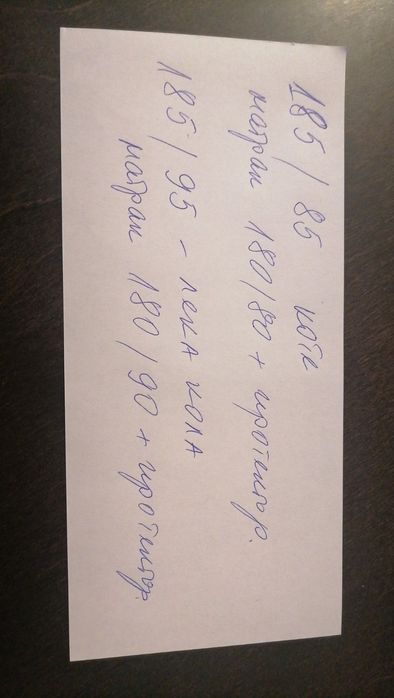 185 / 85 коте
матрак 180/80 + протектор.
185 / 95 - лека кола
матрак 180 / 90 + протектор.